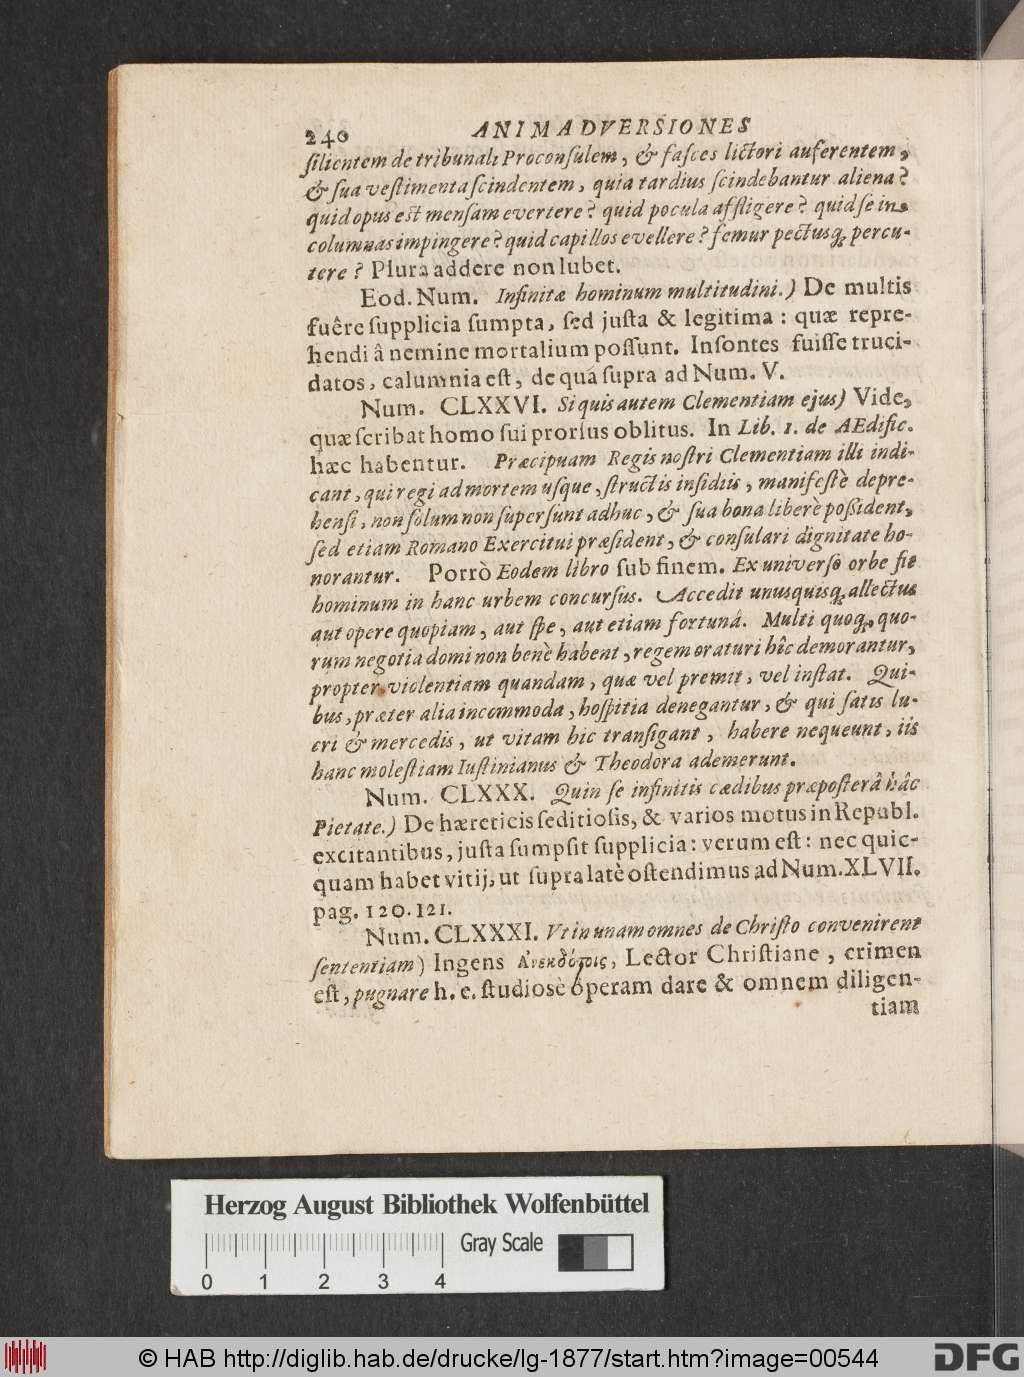 240 ANIMADVERSIONES
silientem de tribunali Proconsulem, & fasces lictori auferentem,
& sua vestimenta scindentem, quia tardius scindebantur aliena?
quid opus est mensam evertere? quid pocula affligere? quid se in
columnas impingere? quid capillos evellere? femur pectusq; percu-
tere? Plura addere non lubet.
Eod. Num. Infinitæ hominum multitudini.) De multis
fuêre supplicia sumpta, sed justa & legitima: quæ repre-
hendi â nemine mortalium possunt. Insontes fuisse truci-
datos, calumnia est, de quá supra ad Num. V.
Num. CLXXVI. Si quis autem Clementiam ejus) Vide,
quæ scribat homo sui prorsus oblitus. In Lib. 1. de AEdific.
hæc habentur. Præcipuam Regis nostri Clementiam illi indi-
cant, qui regi ad mortem usque, structis insidiis, manifestè depre-
hensi, non solum non supersunt adhuc, & sua bona liberè possident,
sed etiam Romano Exercitui præsident, & consulari dignitate ho-
norantur. Porrò Eodem libro sub finem. Ex universo orbe fit
hominum in hanc urbem concursus. Accedit unusquisq; allectus
aut opere quopiam, aut spe, aut etiam fortunâ. Multi quoq;, quo-
rum negotia domi non benè habent, regem oraturi hîc demorantur,
propter violentiam quandam, quæ vel premit, vel instat. Qui-
bus, præter alia incommoda, hospitia denegantur, & qui satis lu-
cri & mercedis, ut vitam hic transigant, habere nequeunt, iis
hanc molestiam Iustinianus & Theodora ademerunt.
Num. CLXXX. Quin se infinitis cædibus præposterâ hâc
Pietate.) De hæreticis seditiosis, & varios motus in Republ.
excitantibus, justa sumpsit supplicia: verum est: nec quic-
quam habet vitij, ut supra latè ostendimus ad Num. XLVII.
pag. 120. 121.
Num. CLXXXI. Vt in unam omnes de Christo convenirent
sententiam) Ingens Ἀνεκδότοις, Lector Christiane, crimen
est, pugnare h. e. studiosè operam dare & omnem diligen-
tiam
Herzog August Bibliothek Wolfenbüttel
Gray Scale
0 1 2 3 4
© HAB http://diglib.hab.de/drucke/lg-1877/start.htm?image=00544
DFG